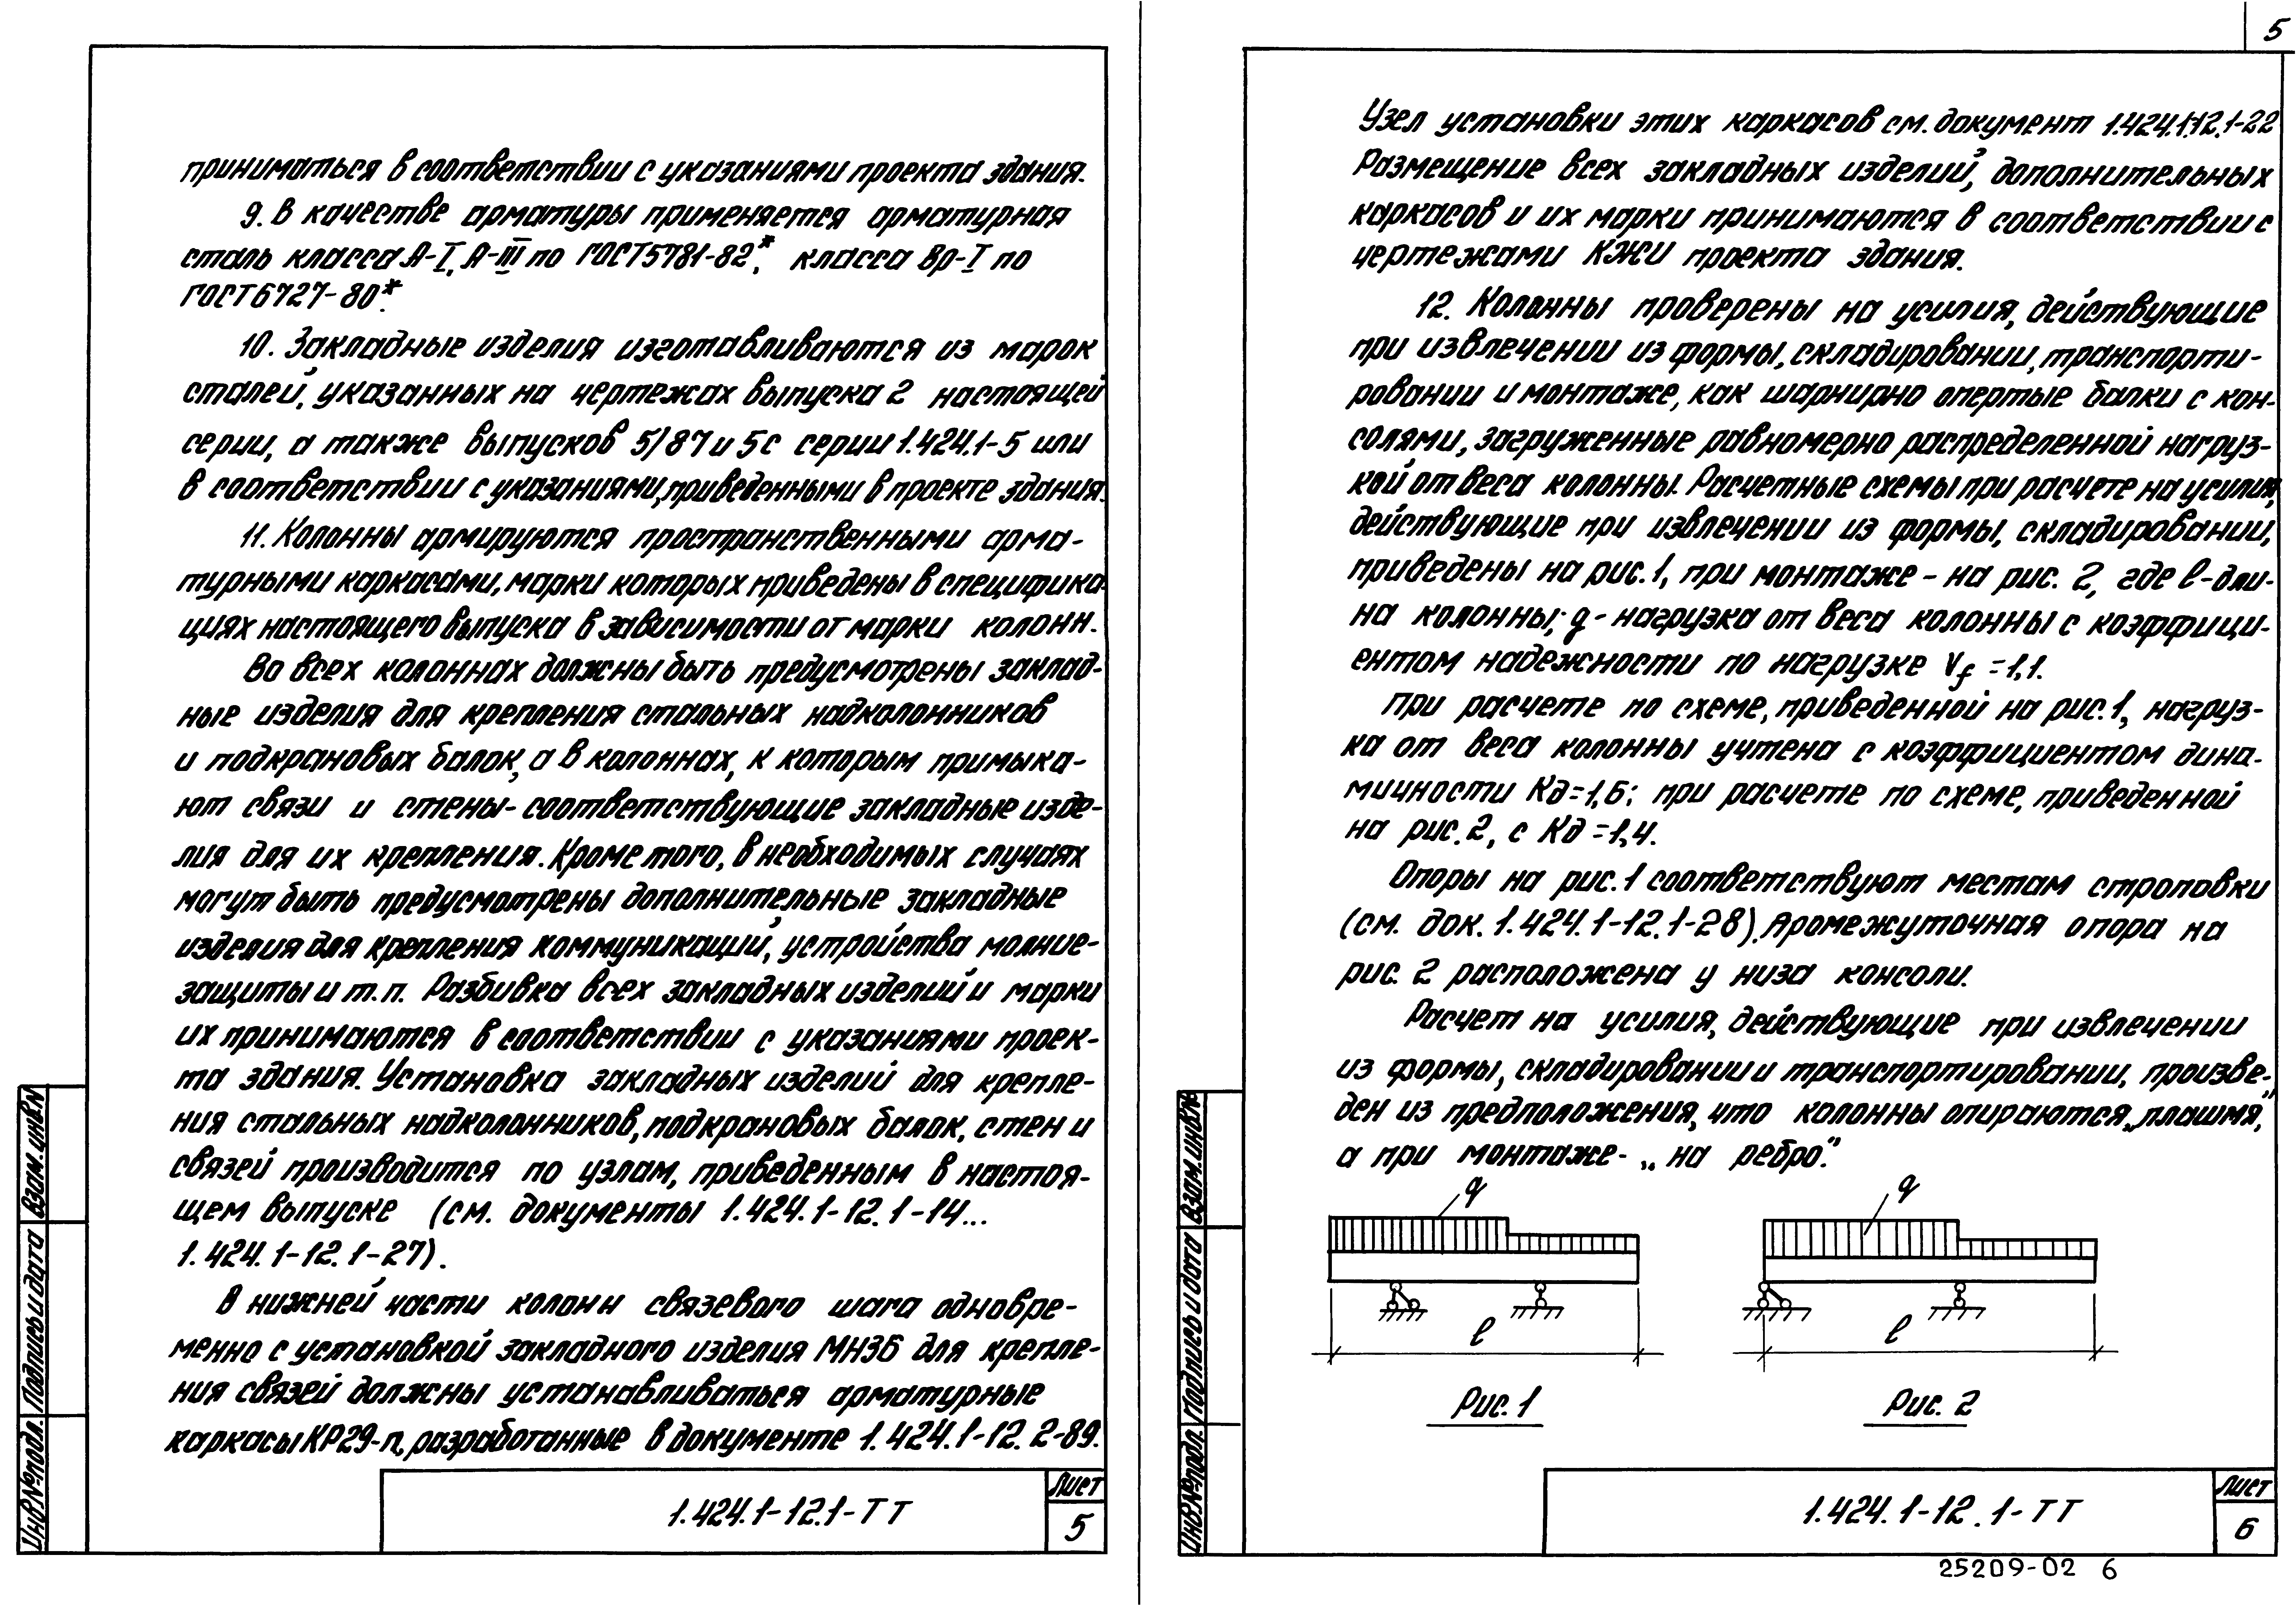 приниматься в соответствии с указаниями проекта здания.
9. В качестве арматуры применяется арматурная
сталь класса А-I, А-III по ГОСТ 5781-82*, класса Вр-I по
ГОСТ 6727-80*.
10. Закладные изделия изготавливаются из марок
сталей, указанных на чертежах выпуска 2 настоящей
серии, а также выпусков 5/87 и 5с серии 1.424.1-5 или
в соответствии с указаниями, приведенными в проекте здания.
11. Колонны армируются пространственными арма-
турными каркасами, марки которых приведены в специфика-
циях настоящего выпуска в зависимости от марки колонн.
Во всех колоннах должны быть предусмотрены заклад-
ные изделия для крепления стальных надколонников
и подкрановых балок, а в колоннах, к которым примыка-
ют связи и стены- соответствующие закладные изде-
лия для их крепления. Кроме того, в необходимых случаях
могут быть предусмотрены дополнительные закладные
изделия для крепления коммуникаций, устройства молние-
защиты и т.п. Разбивка всех закладных изделий и марки
их принимаются в соответствии с указаниями проек-
та здания. Установка закладных изделий для крепле-
ния стальных надколонников, подкрановых балок, стен и
связей производится по узлам, приведенным в настоя-
щем выпуске (см. документы 1.424.1-12.1-14...
1.424.1-12.1-27).
В нижней части колонн связевого шага одновре-
менно с установкой закладного изделия МН36 для крепле-
ния связей должны устанавливаться арматурные
каркасы КР29-п, разработанные в документе 1.424.1-12.2-89.
Взам. инв.N
Подпись и дата
Инв.№ подл.
1.424.1-12.1-ТТ
Лист
5
5
Узел установки этих каркасов см. документ 1.424.1-12.1-22
Размещение всех закладных изделий, дополнительных
каркасов и их марки принимаются в соответствии с
чертежами КЖИ проекта здания.
12. Колонны проверены на усилия, действующие
при извлечении из формы, складировании, транспорти-
ровании и монтаже, как шарнирно опертые балки с кон-
солями, загруженные равномерно распределенной нагруз-
кой от веса колонны. Расчетные схемы при расчете на усилия,
действующие при извлечении из формы, складировании,
приведены на рис. 1, при монтаже - на рис. 2, где ℓ - дли-
на колонны; q - нагрузка от веса колонны с коэффици-
ентом надежности по нагрузке Vf = 1,1.
При расчете по схеме, приведенной на рис. 1, нагруз-
ка от веса колонны учтена с коэффициентом дина-
мичности Кд=1,6; при расчете по схеме, приведенной
на рис. 2, с Кд=1,4.
Опоры на рис. 1 соответствуют местам строповки
(см. док. 1.424.1-12.1-28). Промежуточная опора на
рис. 2 расположена у низа консоли.
Расчет на усилия, действующие при извлечении
из формы, складировании и транспортировании, произве-
ден из предположения, что колонны опираются „плашмя“,
а при монтаже- „на ребро“.
q
q
ℓ
ℓ
Рис. 1
Рис. 2
Взам. инв.№
Подпись и дата
Инв.№ подл.
1.424.1-12.1-ТТ
Лист
6
25209-02 6